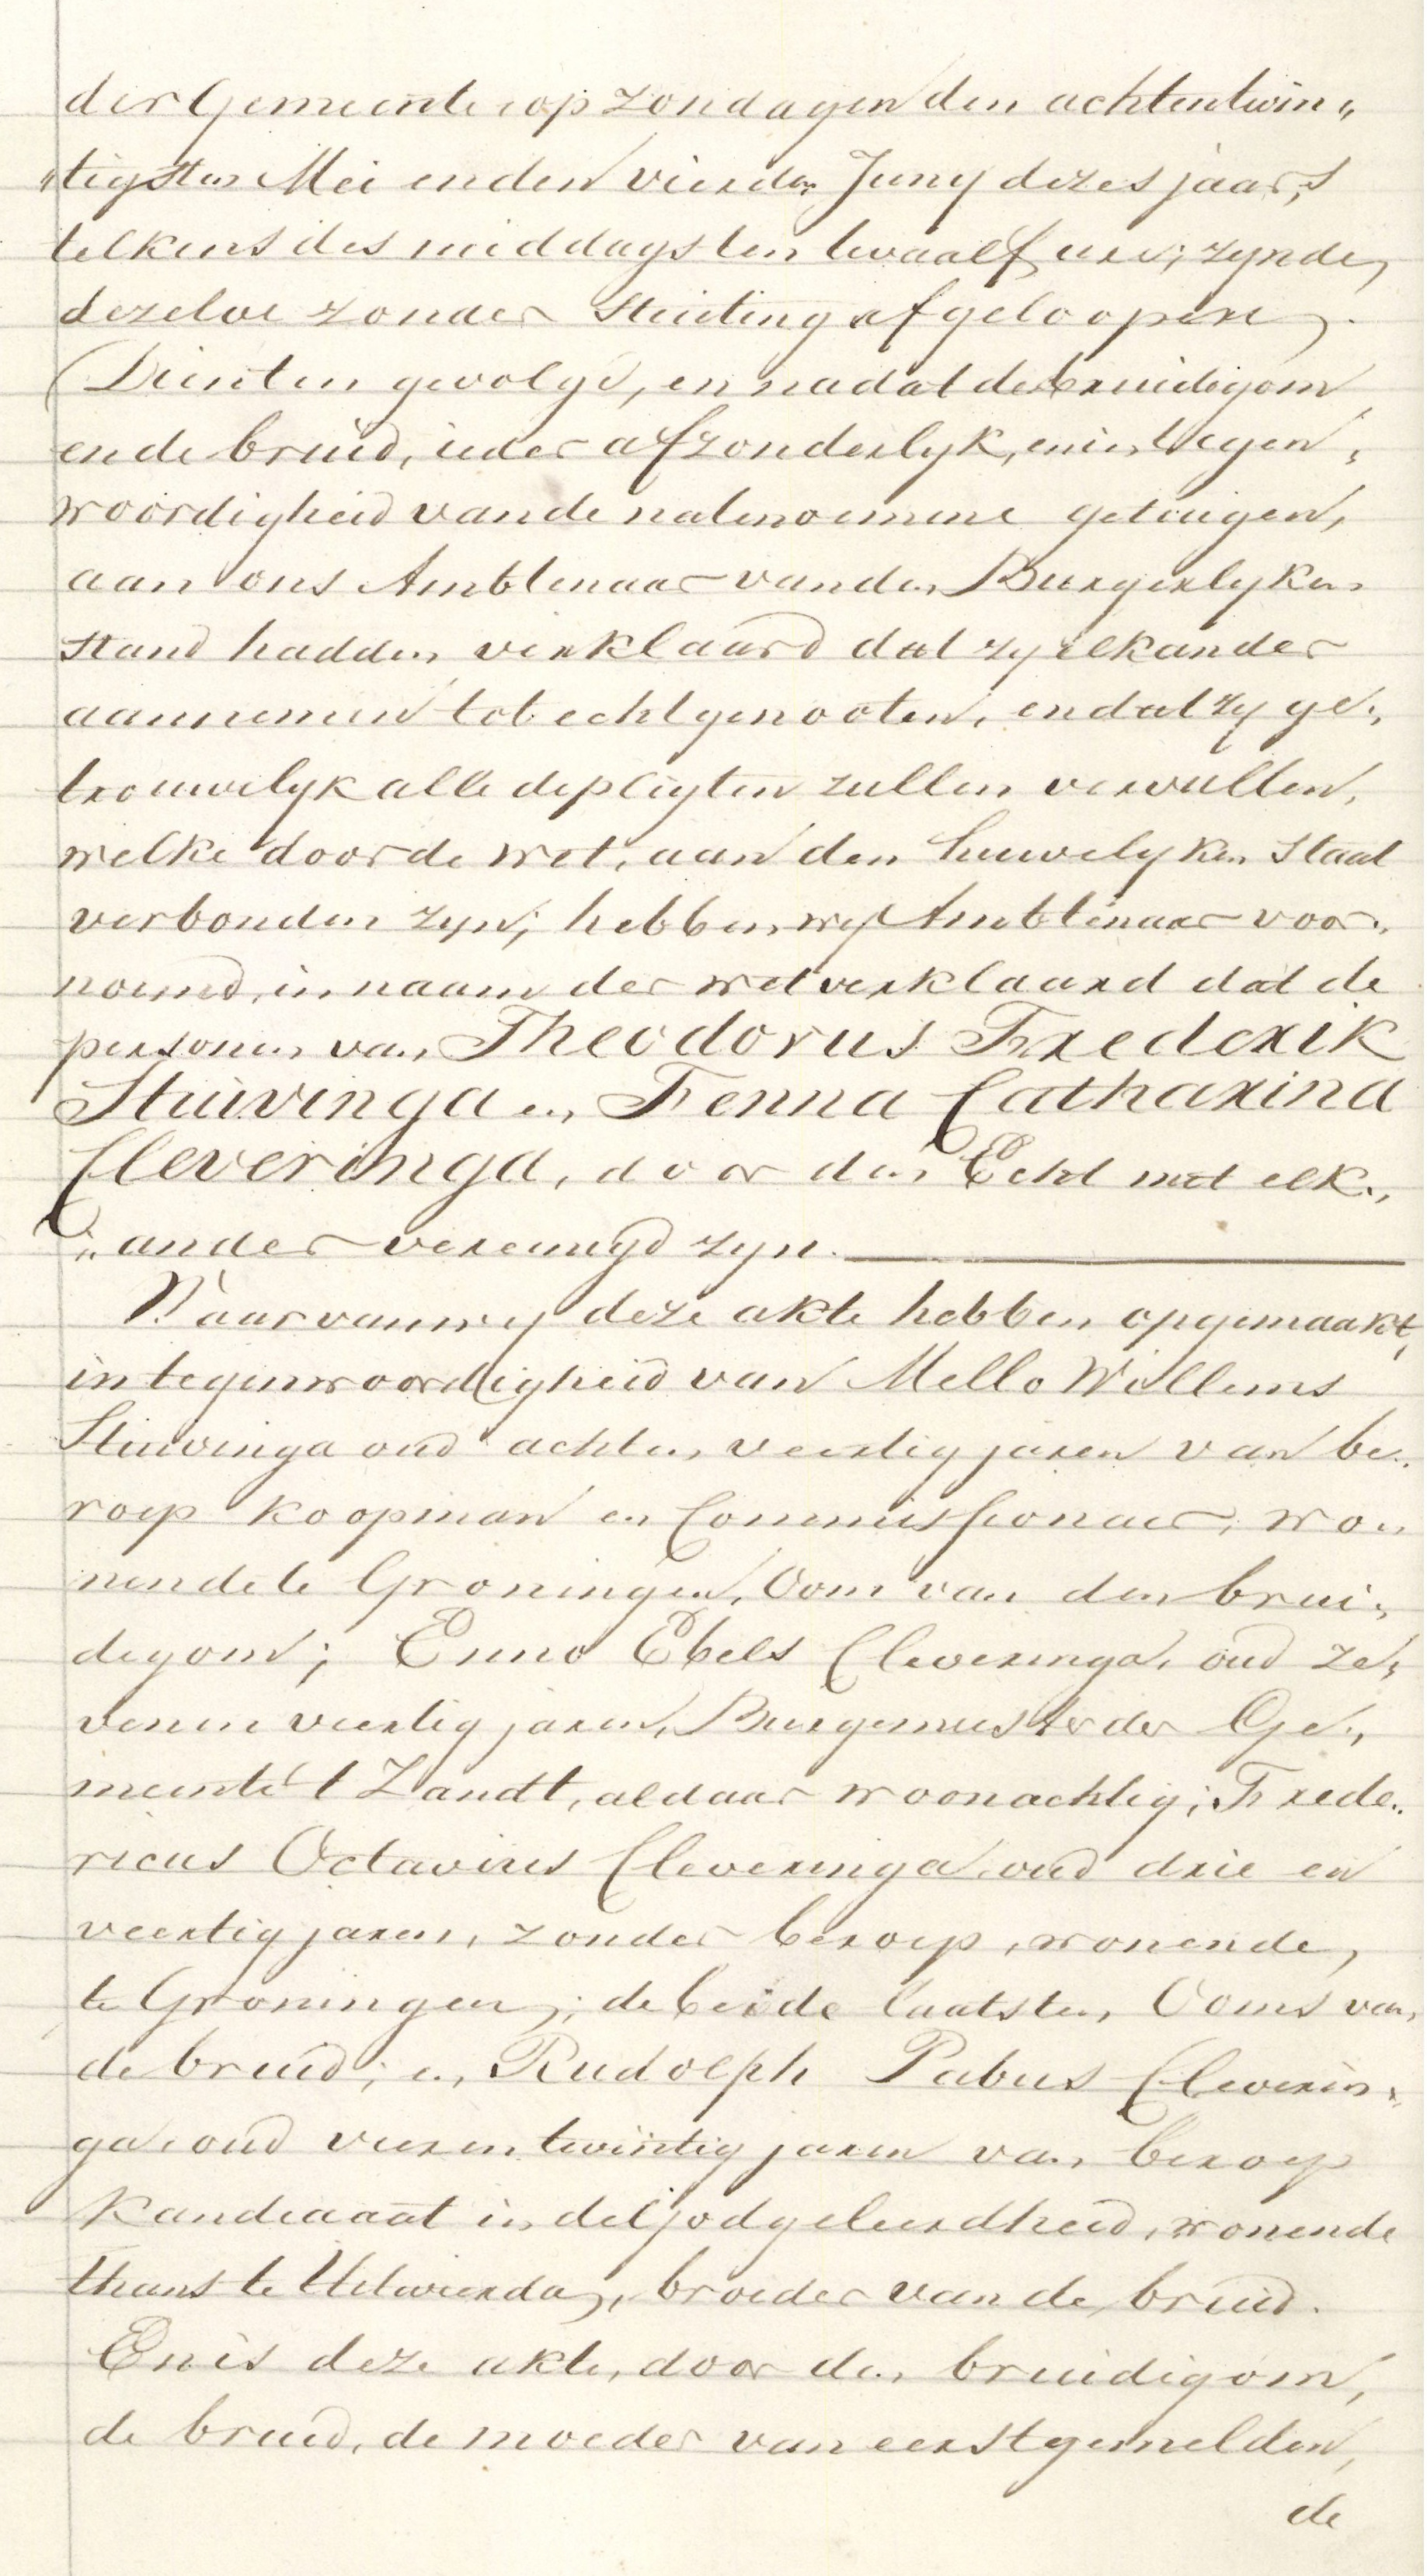 der Gemeente op zondagen den achtentwin„
„tigsten Mei en den vierden Juny dezes jaars,
telkens des middags ten twaalf ure; zynde
dezelve zonder stuiting afgeloopen.
Dienten gevolge, en nadat de bruidigom
en de bruid, ieder afzonderlyk, en in tegen„
woordigheid van de natenoemene getuigen,
aan ons Ambtenaar van den Burgerlyken
stand hadden verklaard dat zy elkander
aannemen tot echtgenooten, en dat zy ge„
trouwelyk alle de pligten zullen vervullen,
welke door de wet, aan den huwelyken staat
verbonden zyn; hebben wy Ambtenaar voor„
noemd, in naam der wet verklaard dat de
personen van Theodorus Frederik
Stuivinga en Fenna Catharina
Cleveringa, door den Echt met elk„
„ander vereenigd zyn.
Waarvan wy deze akte hebben opgemaakt,
in tegenwoordigheid van Mello Willems
Stuivinga oud achten veertig jaren van be„
roep koopman en Commissionair, wo„
nende te Groningen, Oom van den brui„
degom; Enno Ebels Cleveringa, oud ze„
venen veertig jaren, Burgemeester der Ge„
meente 't Zandt, aldaar woonachtig; Frede„
ricus Octavius Cleveringa oud drie en
veertig jaren, zonder beroep, wonende,
te Groningen; de beide laatsten, Ooms van
de bruid; en Rudolph Pabus Cleverin„
ga oud vieren twintig jaren van beroep
Kandidaat in de Godgeleerdheid, wonende
thans te Uitwierda, broeder van de bruid.
En is deze akte, door den bruidigom,
de bruid, de moeder van eerstgemelden,
de